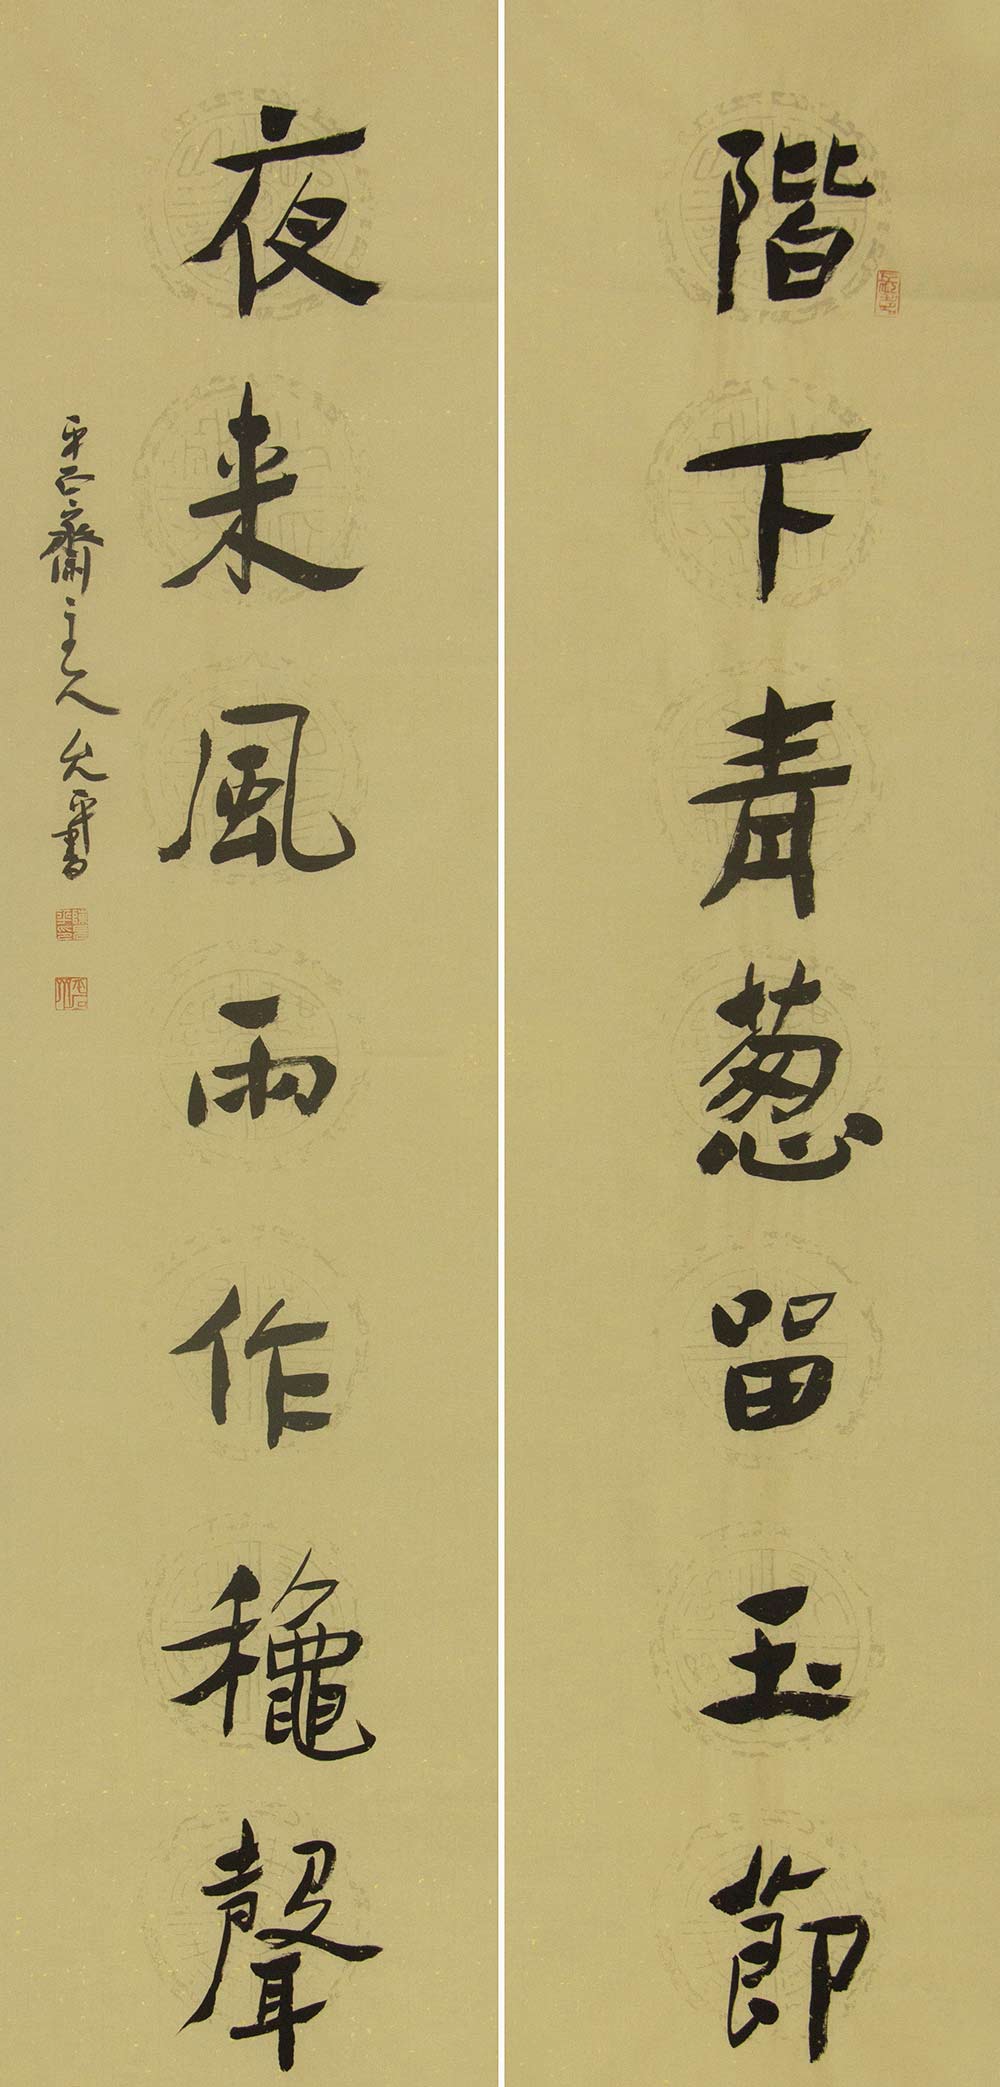 階下青葱留玉節
夜来風雨作龝聲
平正齋主人允平書